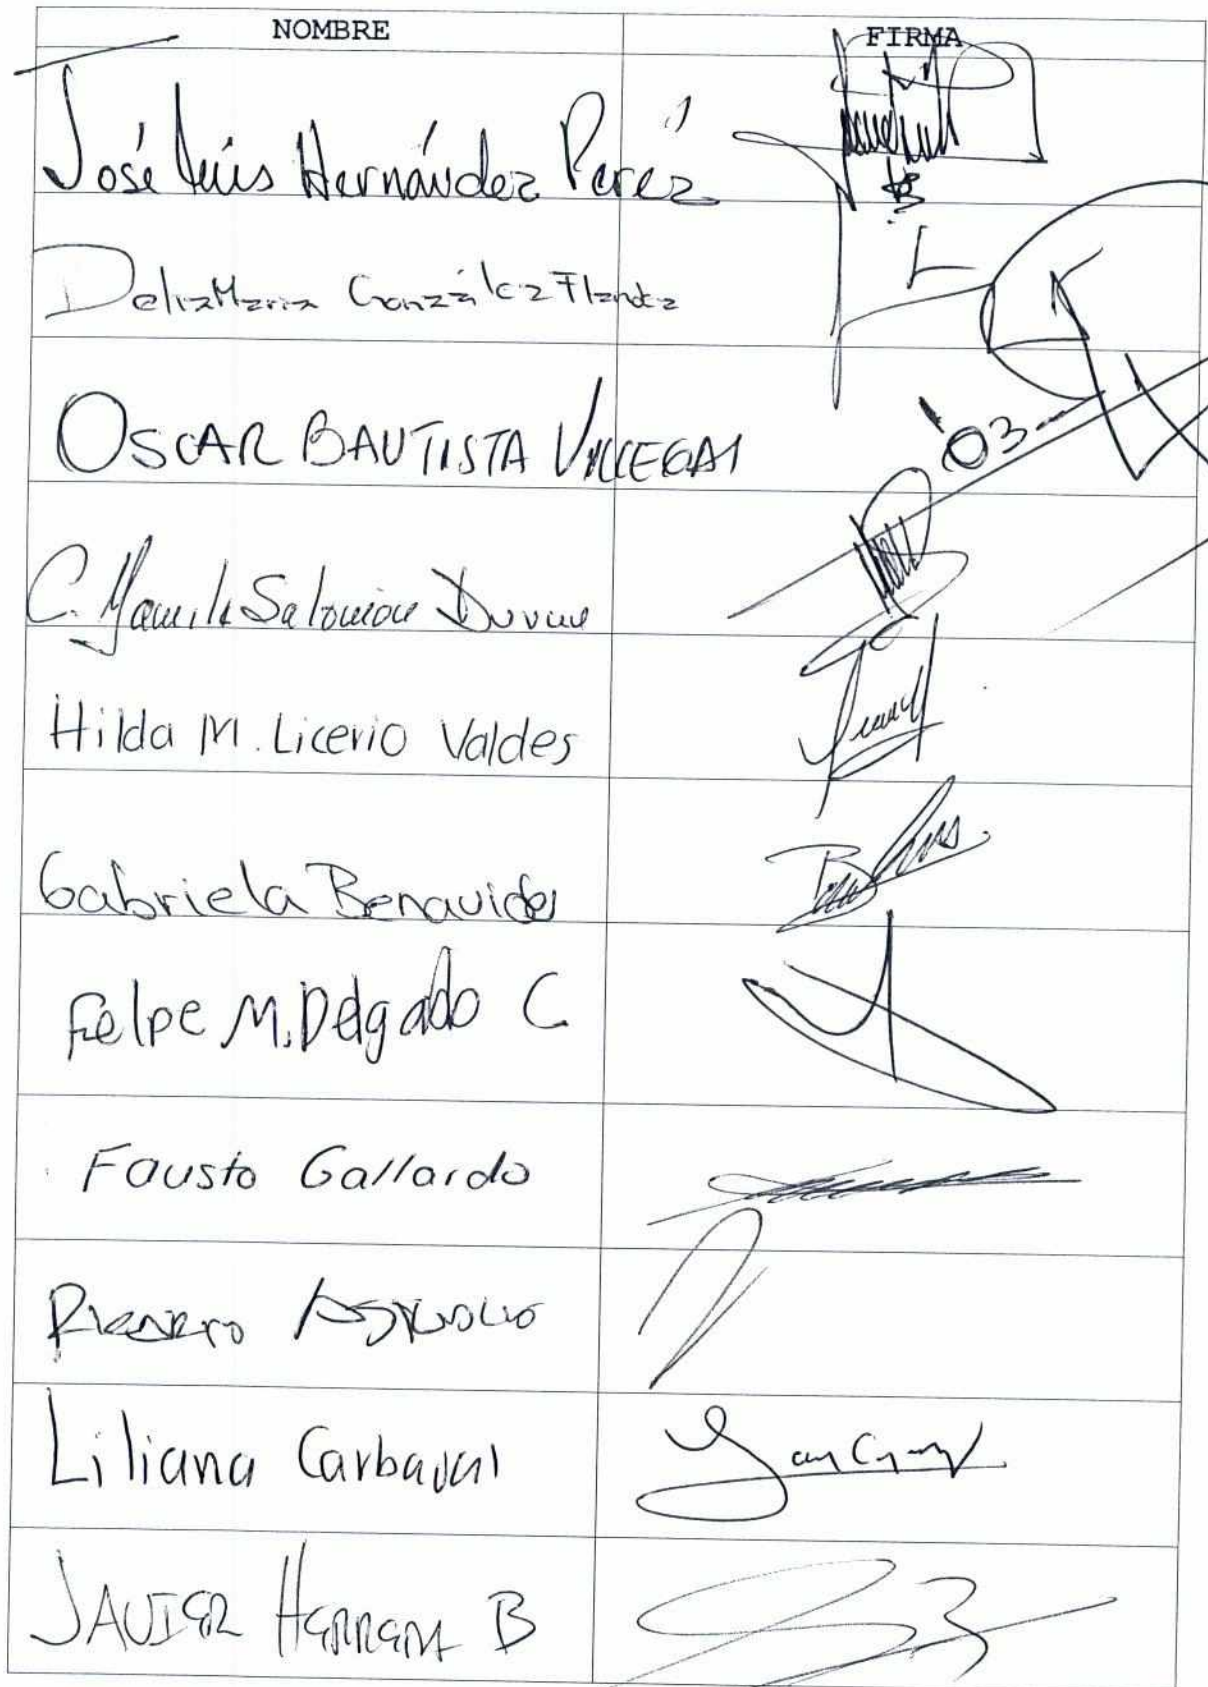 NOMBRE FIRMA
José Luis Hernández Pérez
Delia María González Flandez
OSCAR BAUTISTA VILLEGAS
C. Yamile Salomón
Hilda M. Licerio Valdes
Gabriela Benavides
Felpe M. Delgado C
Fausto Gallardo
Liliana Carbajal
JAVIER HERRERA B